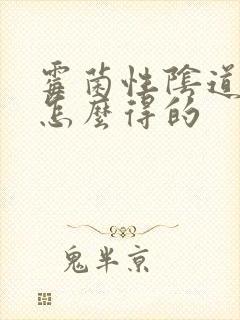 霉菌性陰道
怎麼得的
鬼半京